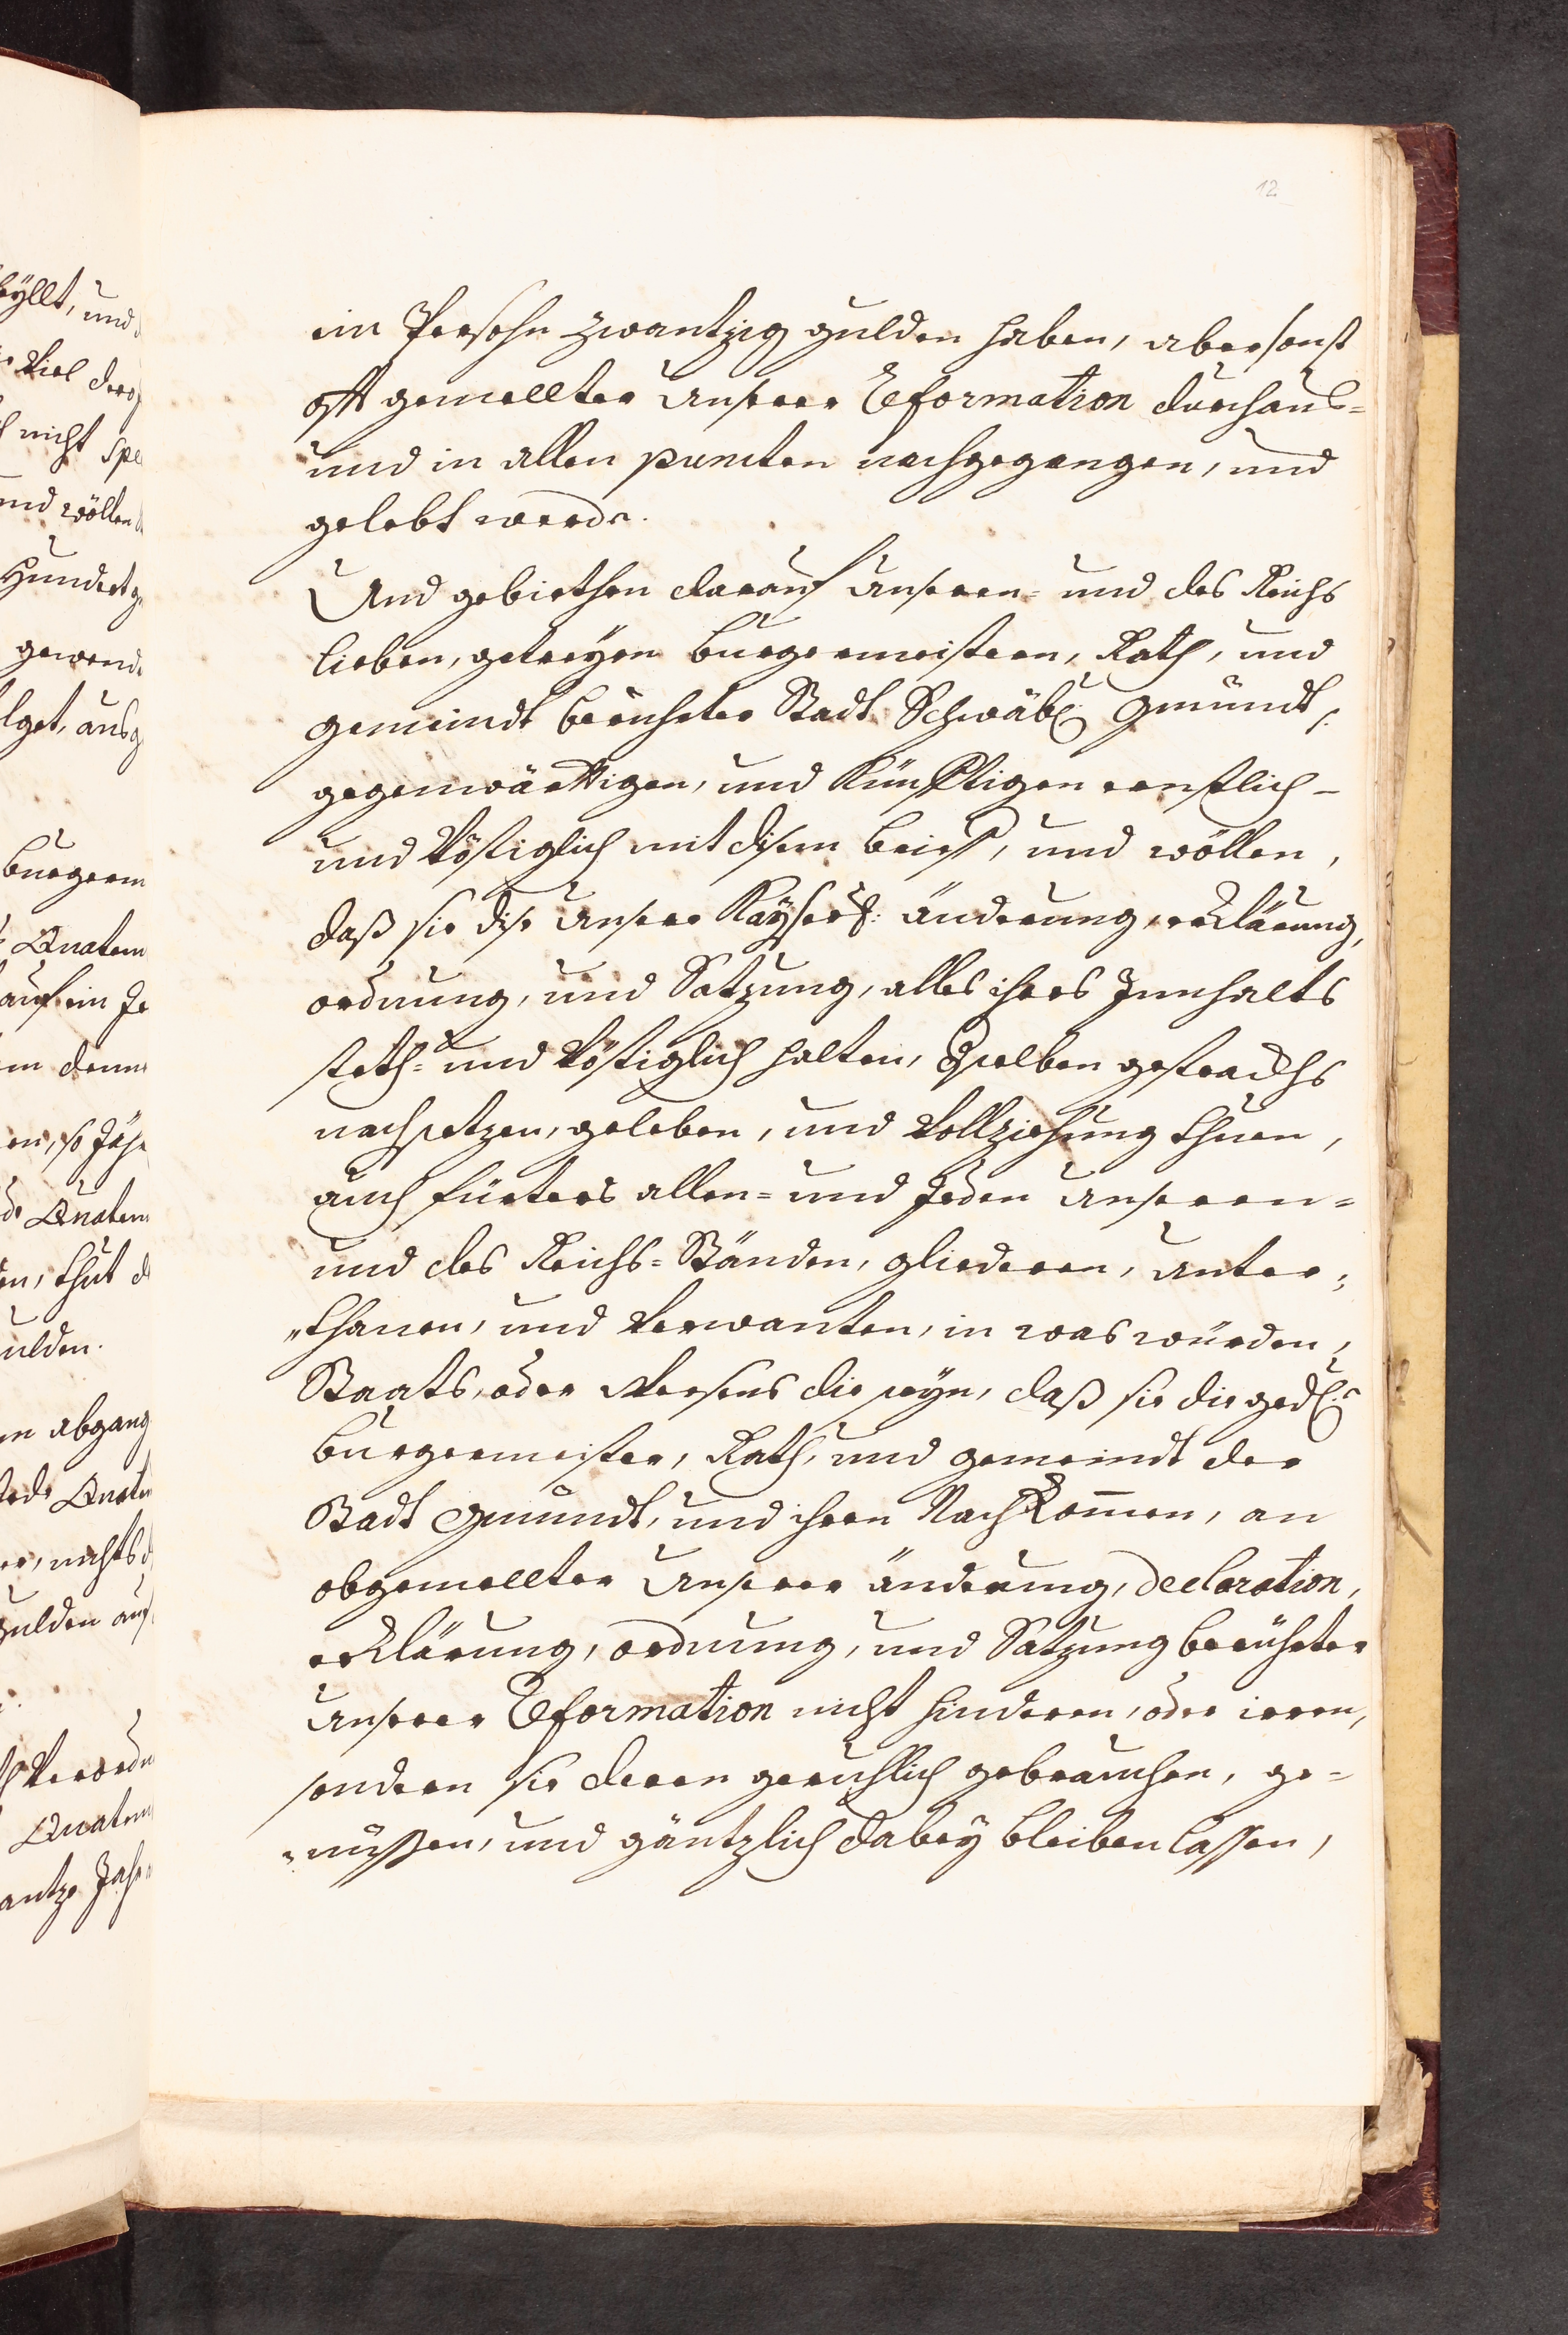 12
ein Persohn zwantzig gulden haben, aber sonst
offt gemellter Unserer Reformation durchaus=
und in allen puncten nachgegangen, und
gelebt werde.
Und gebiethen darauf Unseren= und des Reichs
lieben, getreyen burgermeistern, Rath, und
gemeindt berührter Stadt Schwäb: Gmündt,
gegenwärttigen, und künfftigen ernstlich-
und Vöstiglich mit disem brieff, und wöllen,
daß sie dise Unsere Kayserl: änderung, erklärung,
ordnung, und Satzung, alles ihres Innhalts
steth= und Vöstiglich halten, derselben gestrackhs
nachsetzen, geleben, und Vollziehung thuen,
auch fürters allen= und Jeden Unseren=
und des Reichs=Ständen, gliederen, Unter=
„thanen, und Verwanten, in was würden,
Staats, oder Weesens die seyn, daß sie die gedl:e
burgermeister, Rath, und gemeindt der
Stadt Gmündt, und ihren Nachkom̄en, an
obgemellter Unserer änderung, declaration,
erklärung, ordnung, und Satzung berührter
Unserer Reformation nicht hinderen, oder irren,
sondern sie deren geruhlich gebrauchen, ge=
„nüssen, und gäntzlich dabey bleiben lassen,
und
nicht
und wöllen
Hundert
gewend
burgerm
Quatem
auf ein Je
Quatem
ulden.
abgang
Quatem
gulden auf
Verordn
Quatem